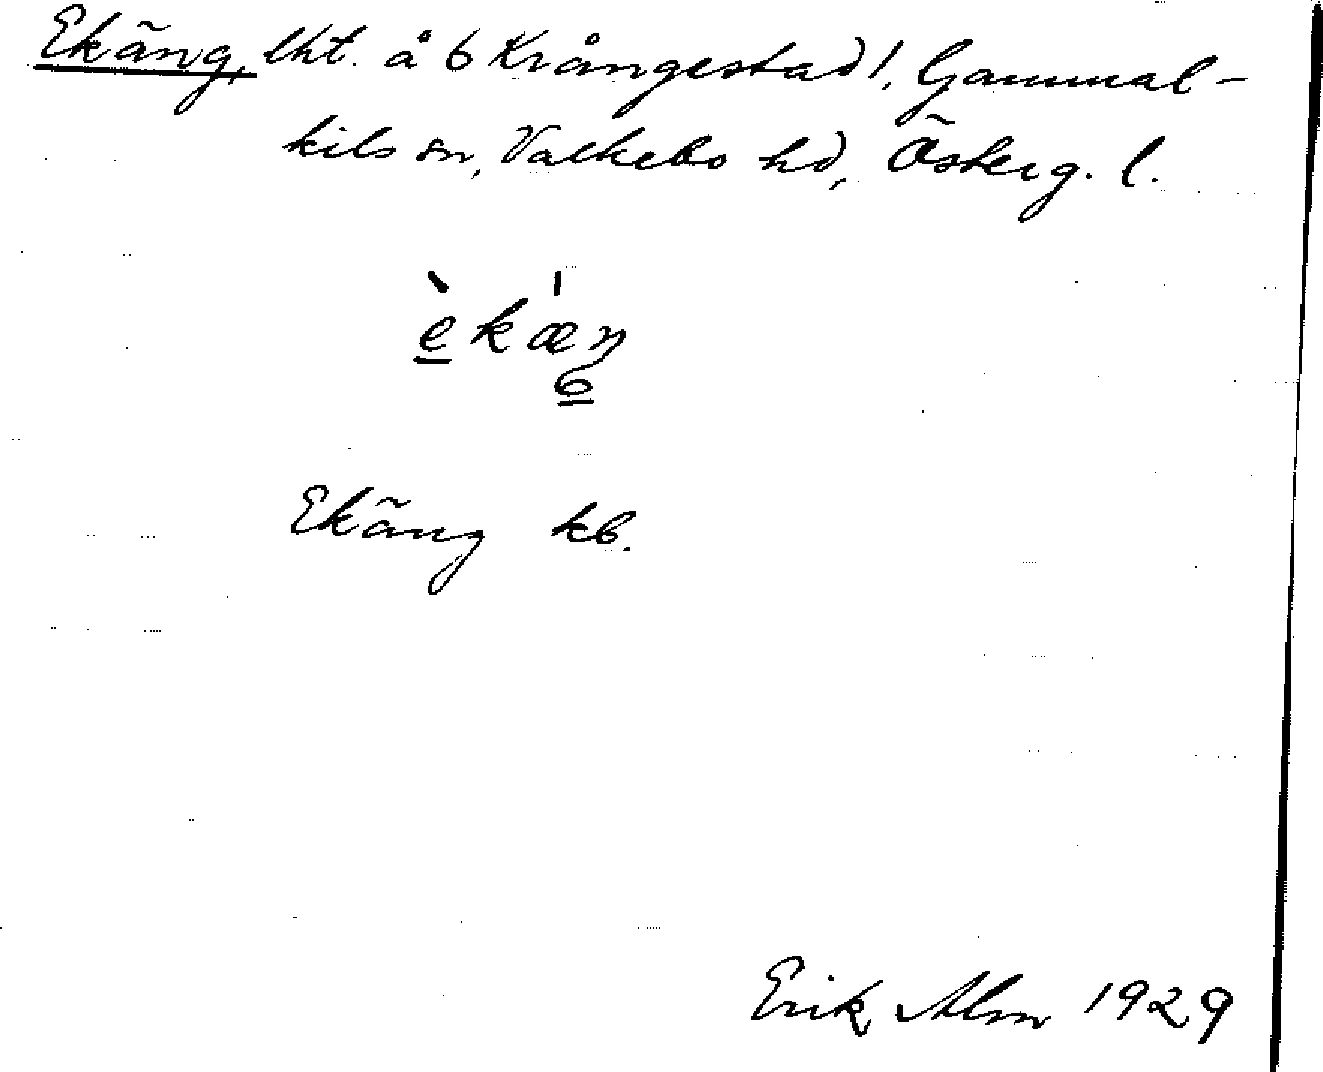 Ekäng, lht. å 6 Krångestad 1, Gammal-
kils sn, Valkebo hd, Österg. l.
èkæŋ
Ekäng kb.
Erik Alm 1929